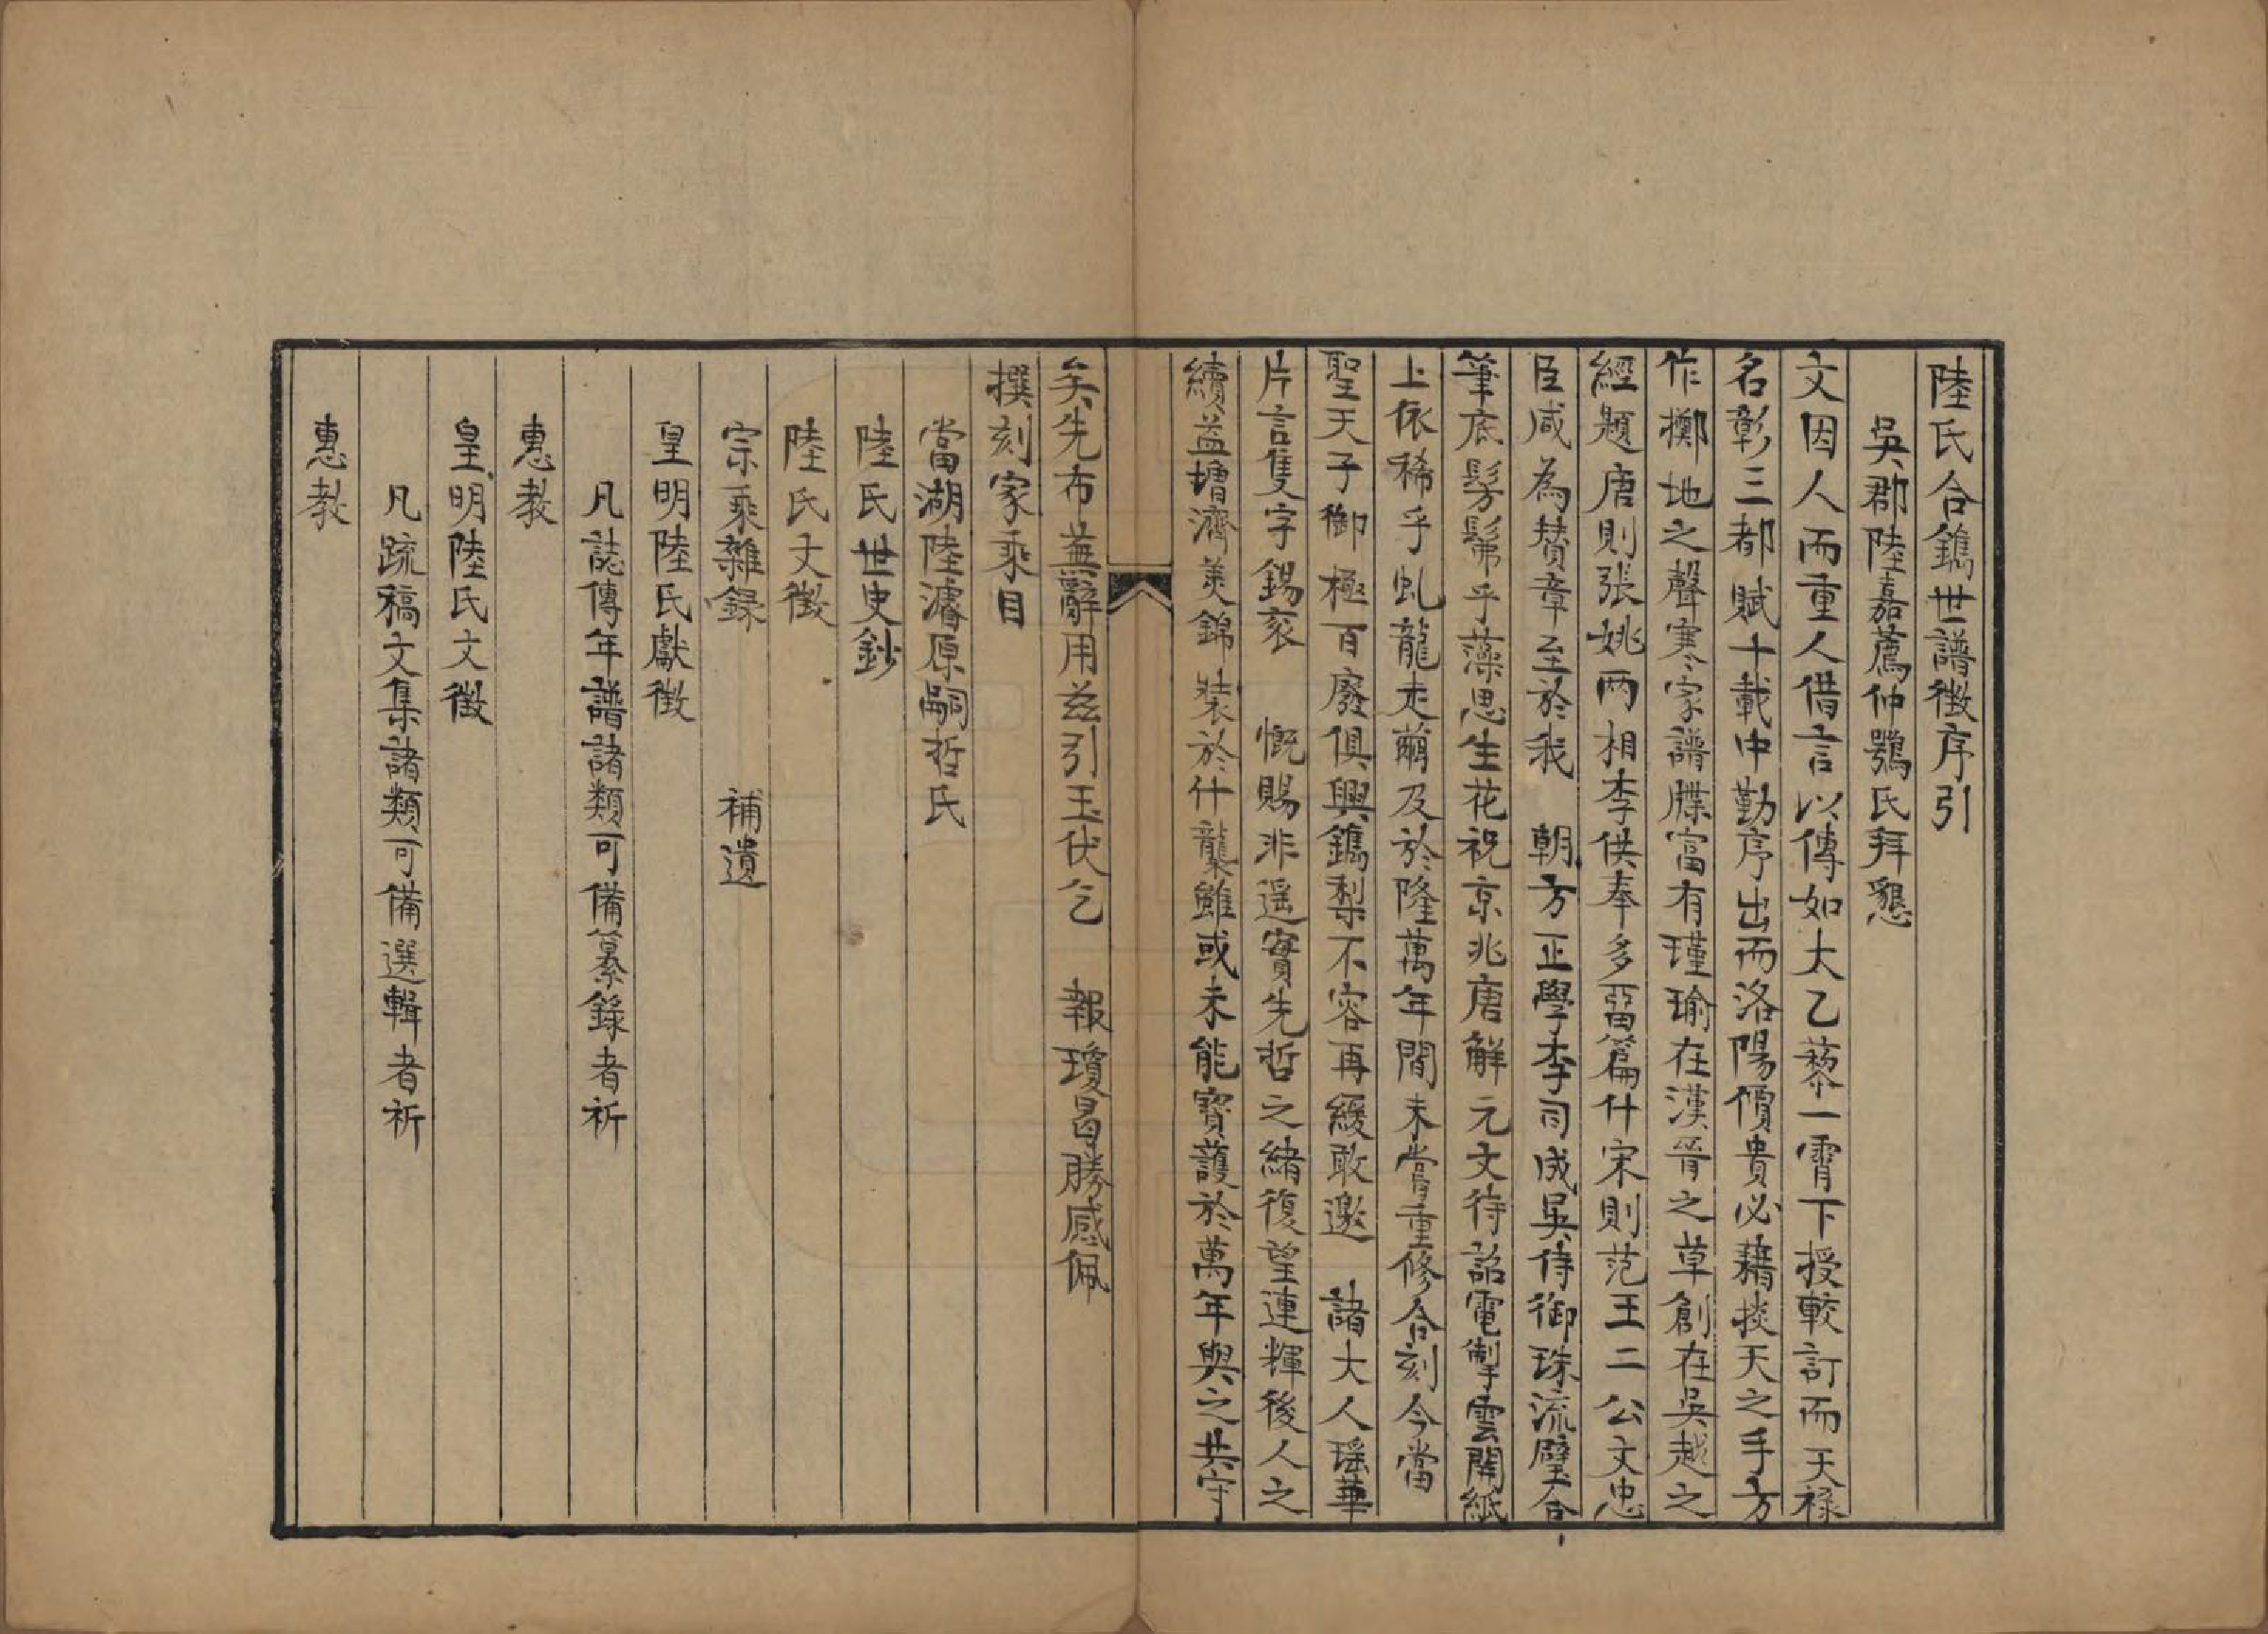 陸氏合鐫世譜徵序引
吳郡陸嘉薦仲鶚氏拜懇
文因人而重人借言以傳如大乙藜一霄下授較訂而天祿
名彰三都賦十載中勤序出而洛陽價貴必藉掞天之手方
作擲地之聲寒家譜牒富有瑾瑜在漢晉之草創在吳越之
經題唐則張姚两相李供奉多畱篇什宋則范王二公文忠
臣咸為賛章至於我 朝方正學李司成吳侍御珠流璧合
筆底髣髴乎藻思生花祝京兆唐解元文待詔電掣雲開紙
上依稀乎虬龍走繭及於隆萬年間未嘗重修合刻今當
聖天子御極百廢俱興鐫梨不容再緩敢邀 諸大人瑶華
片言隻字錫衮 慨賜非遥實先哲之緒復望連輝後人之
續益増濟美錦裝於什襲雖或未能寶䕶於萬年與之共守
矣先布蕪辭用兹引玉伏乞 報瓊曷勝感佩
撰刻家乘目
當湖陸濬原嗣哲氏
陸氏世史鈔
陸氏文徵
宗乘雜錄 補遺
皇明陸氏獻徵
凡誌傳年譜諸類可備纂錄者祈
惠教
皇明陸氏文徵
凡疏稿文集諸類可備選輯者祈
惠教